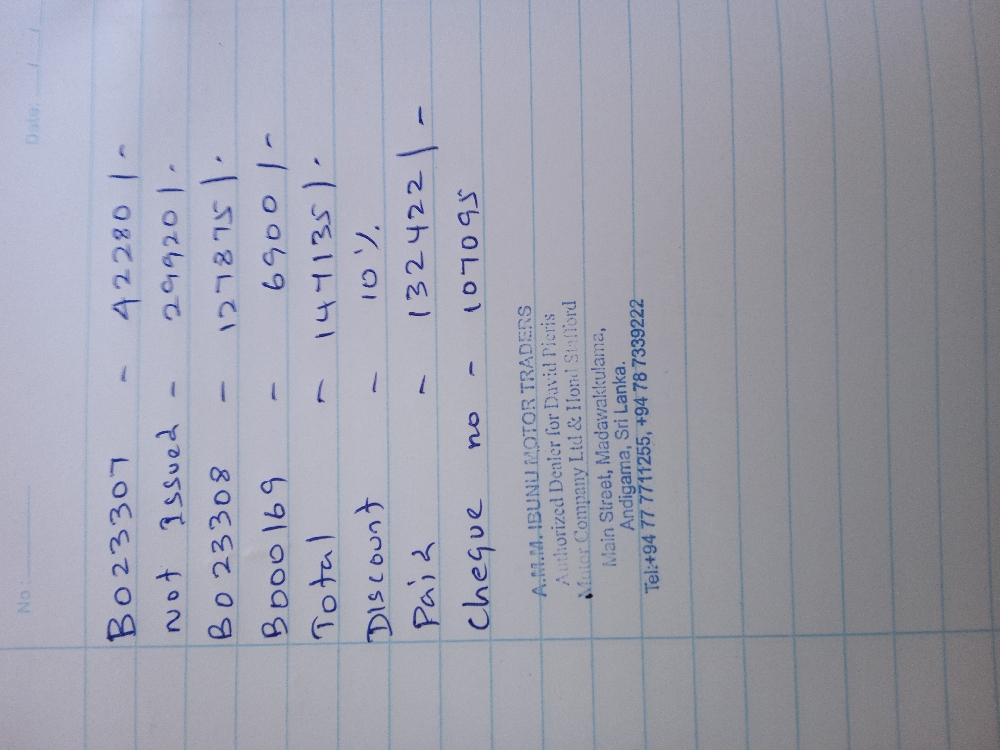 No: Date: / /
B023307 - 42280/-
Not Issued - 29920/-
B023308 - 127875/-
B000169 - 6900/-
Total - 147135/-
Discount - 10%
Paid - 132422/-
Cheque no - 107095
A.M.M. IBUNU MOTOR TRADERS
Authorized Dealer for David Pieris
Motor Company Ltd & Hond Stafford
Main Street, Madawakkulama,
Andigama, Sri Lanka.
Tel:+94 77 7711255, +94 78 7339222